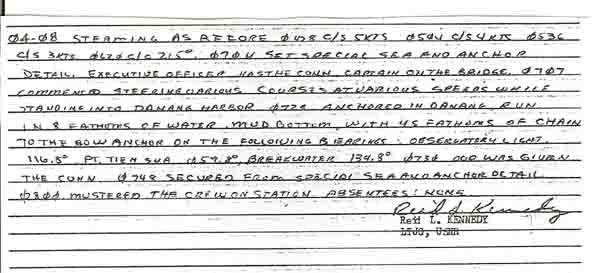 04-08 STEAMING AS BEFORE 0428 C/S 5KTS 0504 C/S 4KTS 0536
C/S 3KTS 0620 C/C 215° 0704 SET SPECIAL SEA AND ANCHOR
DETAIL. EXECUTIVE OFFICER HAS THE CONN CAPTAIN ON THE BRIDGE. 0707
COMMENCED STEERING VARIOUS COURSES AT VARIOUS SPEEDS WHILE
STANDING INTO DANANG HARBOR 0725 ANCHORED IN DANANG, RVN
IN 8 FATHOMS OF WATER, MUD BOTTOM, WITH 45 FATHOMS OF CHAIN
TO THE BOW ANCHOR ON THE FOLLOWING BEARINGS: OBSERVATORY LIGHT
116.5° PT. TIEN SHA 059.8°, BREAKWATER 134.8° 0730 OOD WAS GIVEN
THE CONN 0748 SECURED FROM SPECIAL SEA AND ANCHOR DETAIL
0800 MUSTERED THE CREW ON STATION ABSENTEES: NONE
Reid L Kennedy
Reid L. KENNEDY
LTJG, USNR